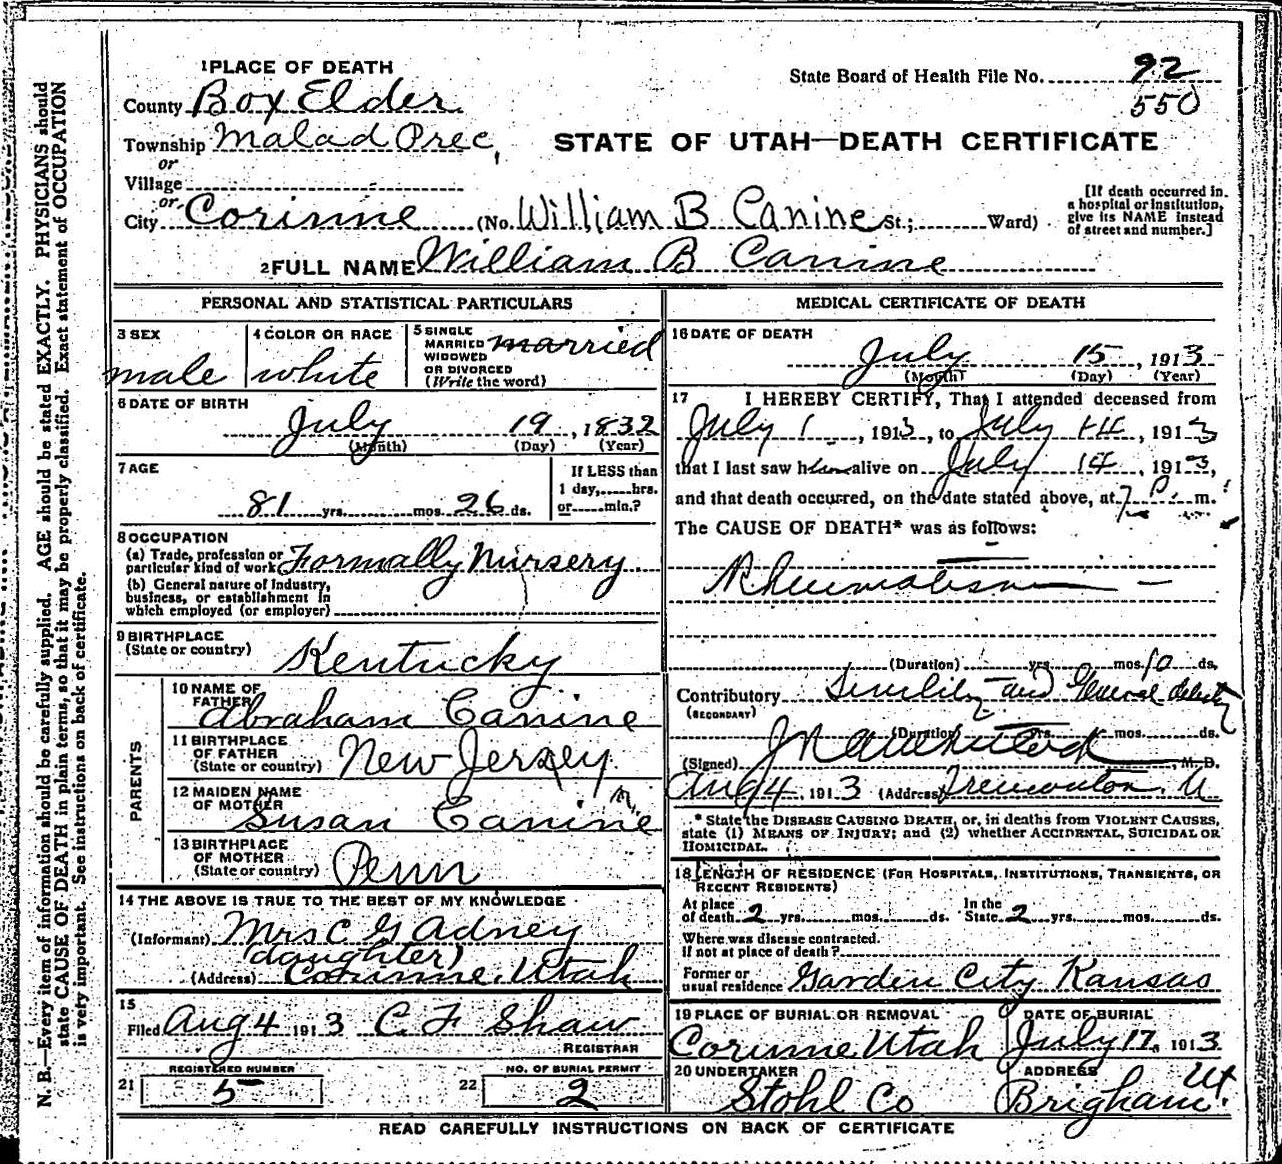 1 PLACE OF DEATH
State Board of Health File No. 92
County Box Elder
550
Township Malad Prec,
STATE OF UTAH—DEATH CERTIFICATE
or
Village
or
City Corinne (No. William B Canine St.; Ward)
[If death occurred in a hospital or institution, give its NAME instead of street and number.]
2 FULL NAME William B Canine
PERSONAL AND STATISTICAL PARTICULARS
3 SEX male
4 COLOR OR RACE white
5 SINGLE MARRIED WIDOWED OR DIVORCED (Write the word) married
6 DATE OF BIRTH
July 19, 1832
(Month) (Day) (Year)
7 AGE
81 yrs. mos. 26 ds.
If LESS than 1 day, hrs. or min.?
8 OCCUPATION
(a) Trade, profession or particular kind of work Formally Nursery
(b) General nature of Industry, business, or establishment in which employed (or employer)
9 BIRTHPLACE (State or country) Kentucky
PARENTS
10 NAME OF FATHER Abraham Canine
11 BIRTHPLACE OF FATHER (State or country) New Jersey
12 MAIDEN NAME OF MOTHER Susan Canine
13 BIRTHPLACE OF MOTHER (State or country) Penn
14 THE ABOVE IS TRUE TO THE BEST OF MY KNOWLEDGE
(Informant) Mrs C G Adney
(daughter)
(Address) Corinne, Utah
15
Filed Aug 4 1913 C. F. Shaw
REGISTRAR
21 REGISTERED NUMBER 5
22 NO. OF BURIAL PERMIT 2
MEDICAL CERTIFICATE OF DEATH
16 DATE OF DEATH
July 15, 1913
(Month) (Day) (Year)
17 I HEREBY CERTIFY, That I attended deceased from
July 1, 1913, to July 14, 1913
that I last saw him alive on July 14, 1913,
and that death occurred, on the date stated above, at 7 P. m.
The CAUSE OF DEATH* was as follows:
Rheumatism
(Duration) yrs. mos. 10 ds.
Contributory Senility and General debility
(SECONDARY)
(Duration) yrs. mos. ds.
(Signed) M. D.
Aug 4, 1913 (Address) Tremonton, U
* State the DISEASE CAUSING DEATH, or, in deaths from VIOLENT CAUSES, state (1) MEANS OF INJURY; and (2) whether ACCIDENTAL, SUICIDAL OR HOMICIDAL.
18 LENGTH OF RESIDENCE (FOR HOSPITALS, INSTITUTIONS, TRANSIENTS, OR RECENT RESIDENTS)
At place of death 2 yrs. mos. ds. In the State 2 yrs. mos. ds.
Where was disease contracted, if not at place of death?
Former or usual residence Garden City Kansas
19 PLACE OF BURIAL OR REMOVAL Corinne Utah
DATE OF BURIAL July 17, 1913
20 UNDERTAKER Stohl Co
ADDRESS Brigham Ut.
READ CAREFULLY INSTRUCTIONS ON BACK OF CERTIFICATE
N. B.—Every item of information should be carefully supplied. AGE should be stated EXACTLY. PHYSICIANS should
state CAUSE OF DEATH in plain terms, so that it may be properly classified. Exact statement of OCCUPATION
is very important. See instructions on back of certificate.